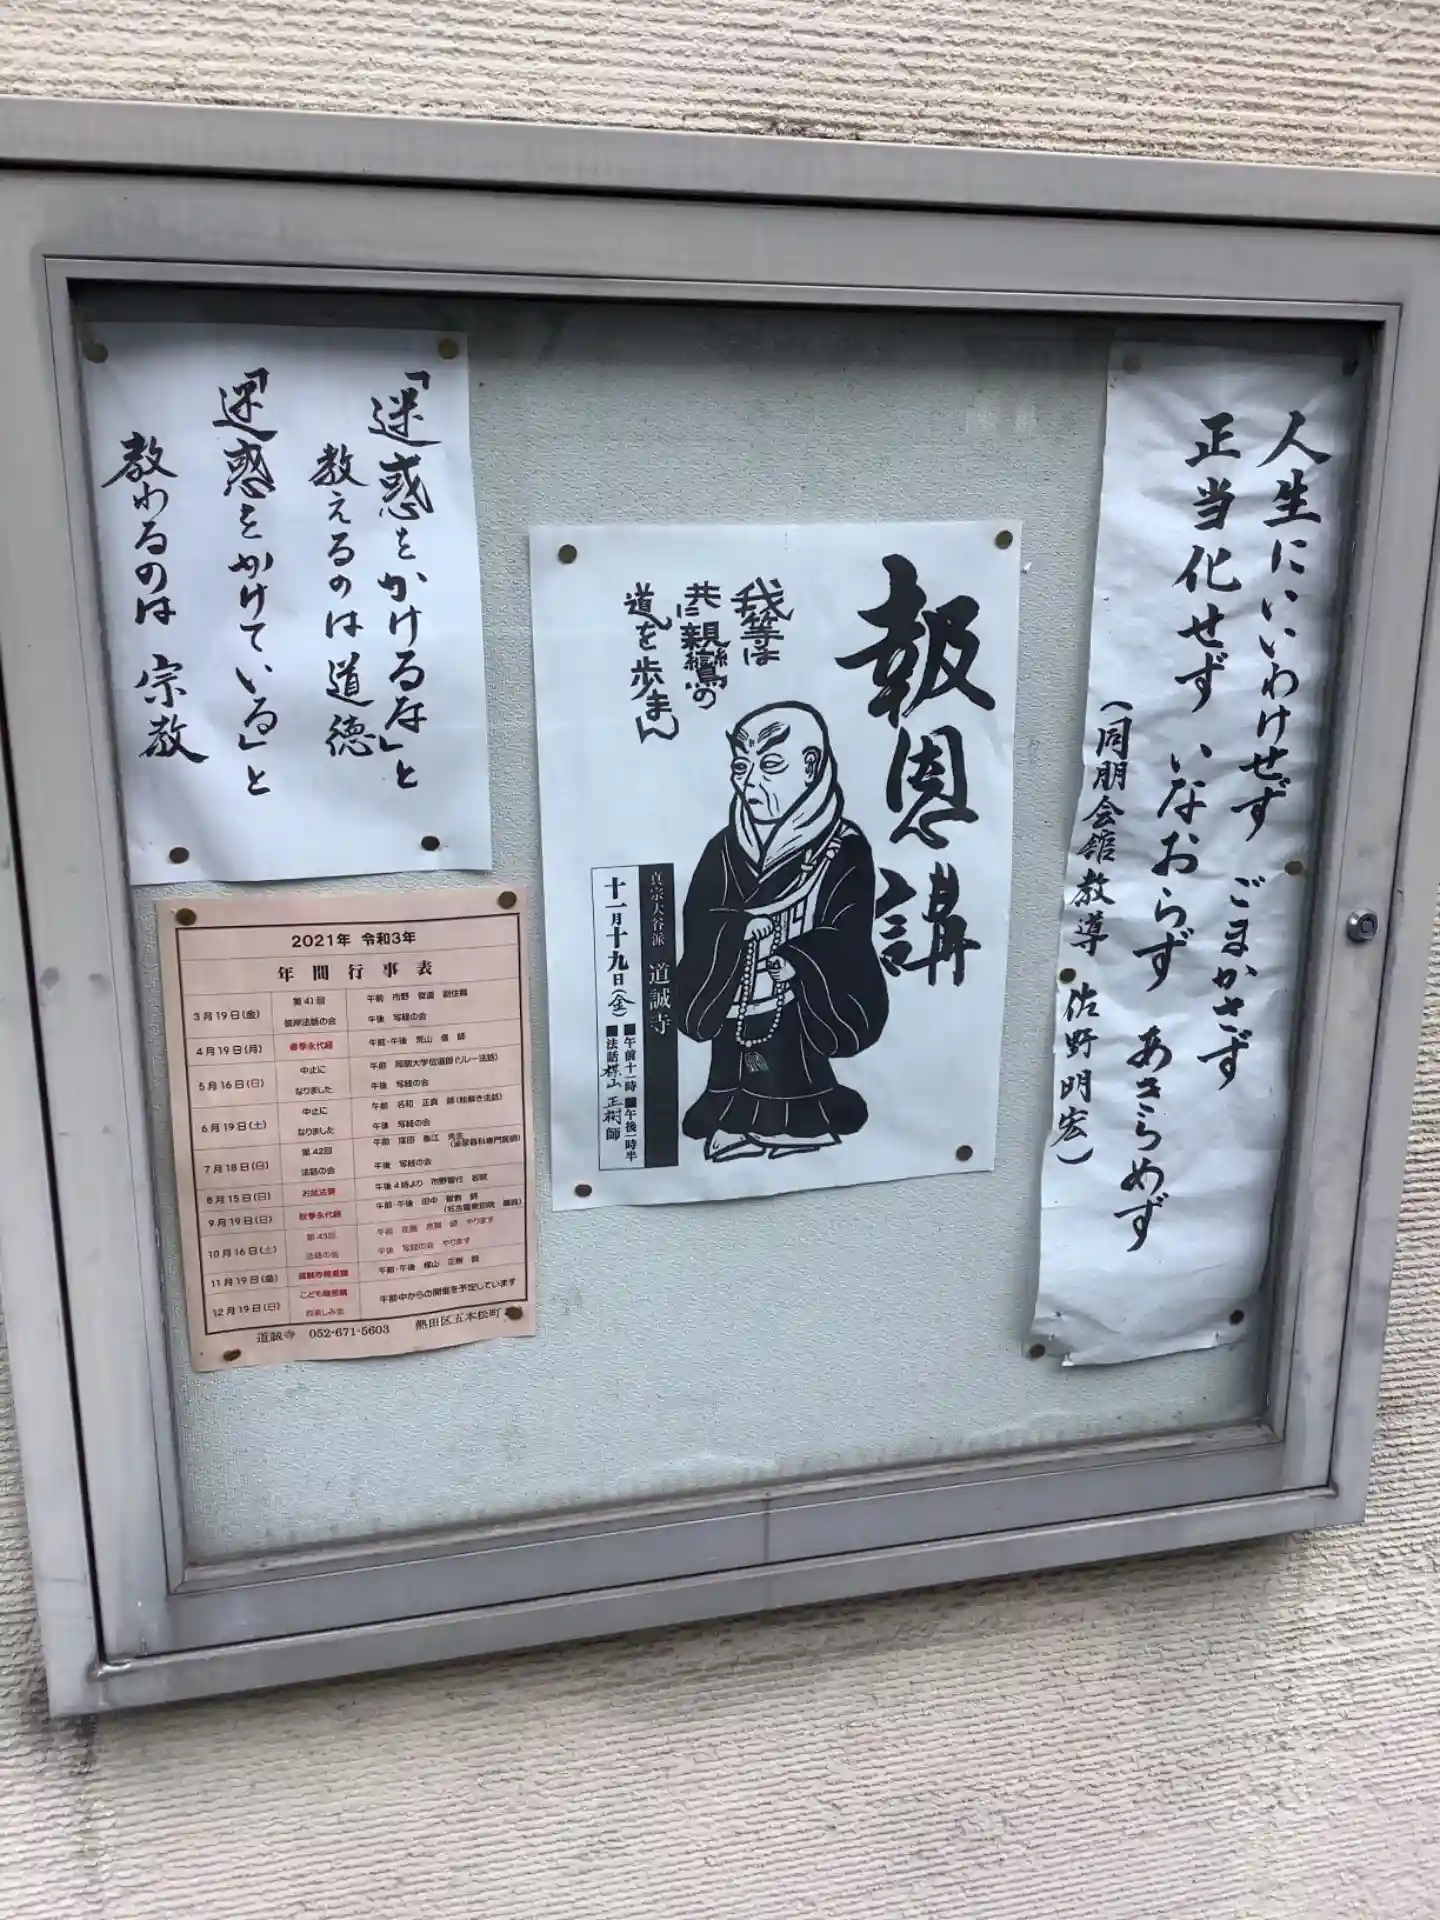 人生にいいわけせず ごまかさず
正当化せず いなおらず あきらめず
(同朋会館教導 佐野明宏)
報恩講
我等は
共に親鸞の
道を歩まん
真宗大谷派 道誠寺
十一月十九日(金)
■午前十一時 ■午後一時半
■法話 梛山 正樹 師
「迷惑をかけるな」と
教えるのは道徳
「迷惑をかけている」と
教わるのは 宗教
2021年 令和3年
年間行事表
3月19日(金) 第41回 彼岸法話の会 午前 市野 俊道 副住職
午後 写経の会
4月19日(月) 春季永代経 午前・午後 荒山 信 師
5月16日(日) 中止に なりました 午前 同朋大学伝道部(リレー法話)
午後 写経の会
6月19日(土) 中止に なりました 午前 名和 正真 師(絵解き法話)
午後 写経の会
7月18日(日) 第42回 法話の会 午前 窪田 泰江 先生(泌尿器科専門医師)
午後 写経の会
8月15日(日) お盆法要 午後4時より 市野智行 若院
9月19日(日) 秋季永代経 午前・午後 田中 師
10月16日(土) 第43回 法話の会 午前 佐藤 師 やります
午後 写経の会 やります
11月19日(金) 道誠寺報恩講 午前・午後 梛山 正樹 師
12月19日(日) こども報恩講 お楽しみ会 午前中からの開催を予定しています
道誠寺 052-671-5603 熱田区五本松町